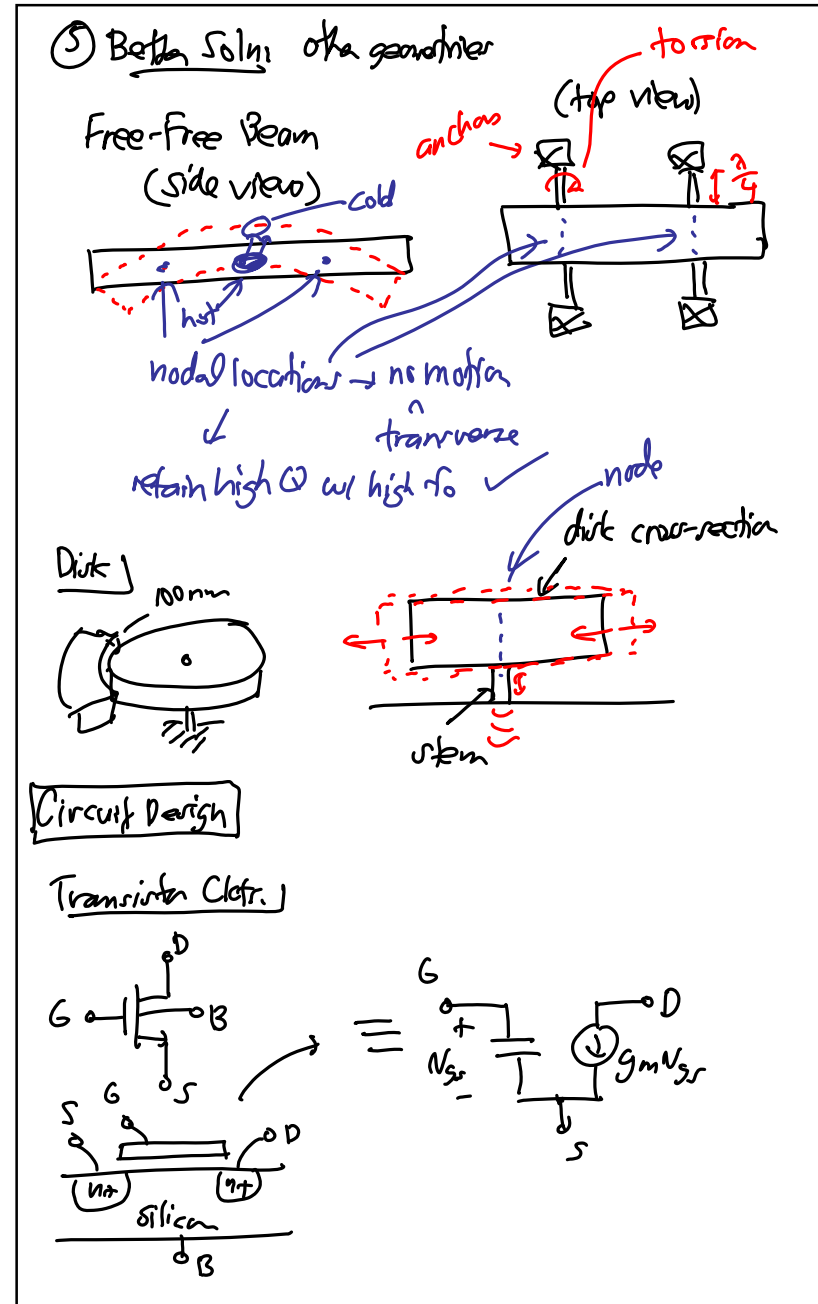 ⑤ Better Soln: other geometries
torsion
Free-Free Beam
(side view)
(top view)
anchors
λ/4
cold
hot
nodal locations → no motion
^
transverse
retain high Q w/ high fo ✓
node
disk cross-section
Disk
100nm
stem
Circuit Design
Transistor Ckts.
D
G
B
S
G
S
D
n+
n+
silicon
B
G
D
+
Vgs
-
gmVgs
S